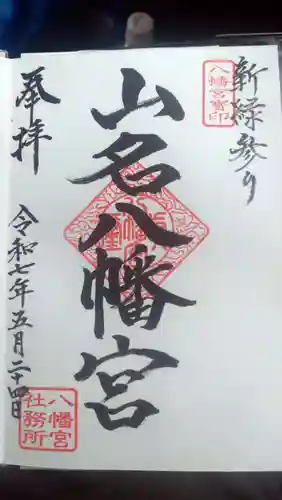 新緑参り
八幡宮寳印
山名八幡宮
奉拝
令和七年五月二十四日
八幡宮
社務所